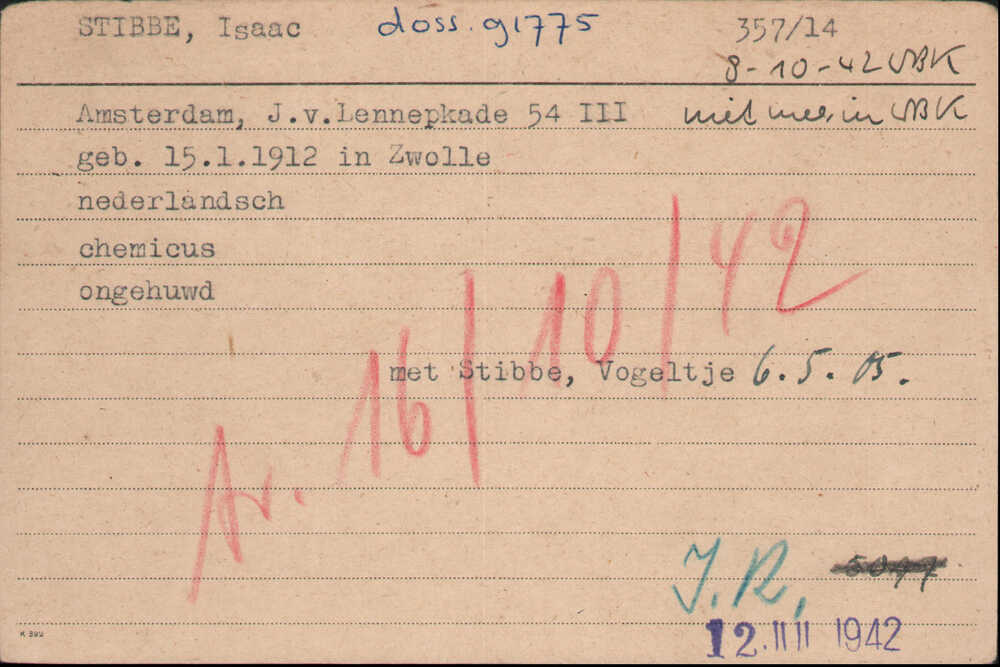 STIBBE, Isaac doss. g1775 357/14
8-10-42 WBK
Amsterdam, J.v.Lennepkade 54 III niet meer in WBK
geb. 15.1.1912 in Zwolle
nederlandsch
chemicus
ongehuwd
met Stibbe, Vogeltje 6.5.05.
Av. 16/10/42
J.R.
12. 1942
K 392